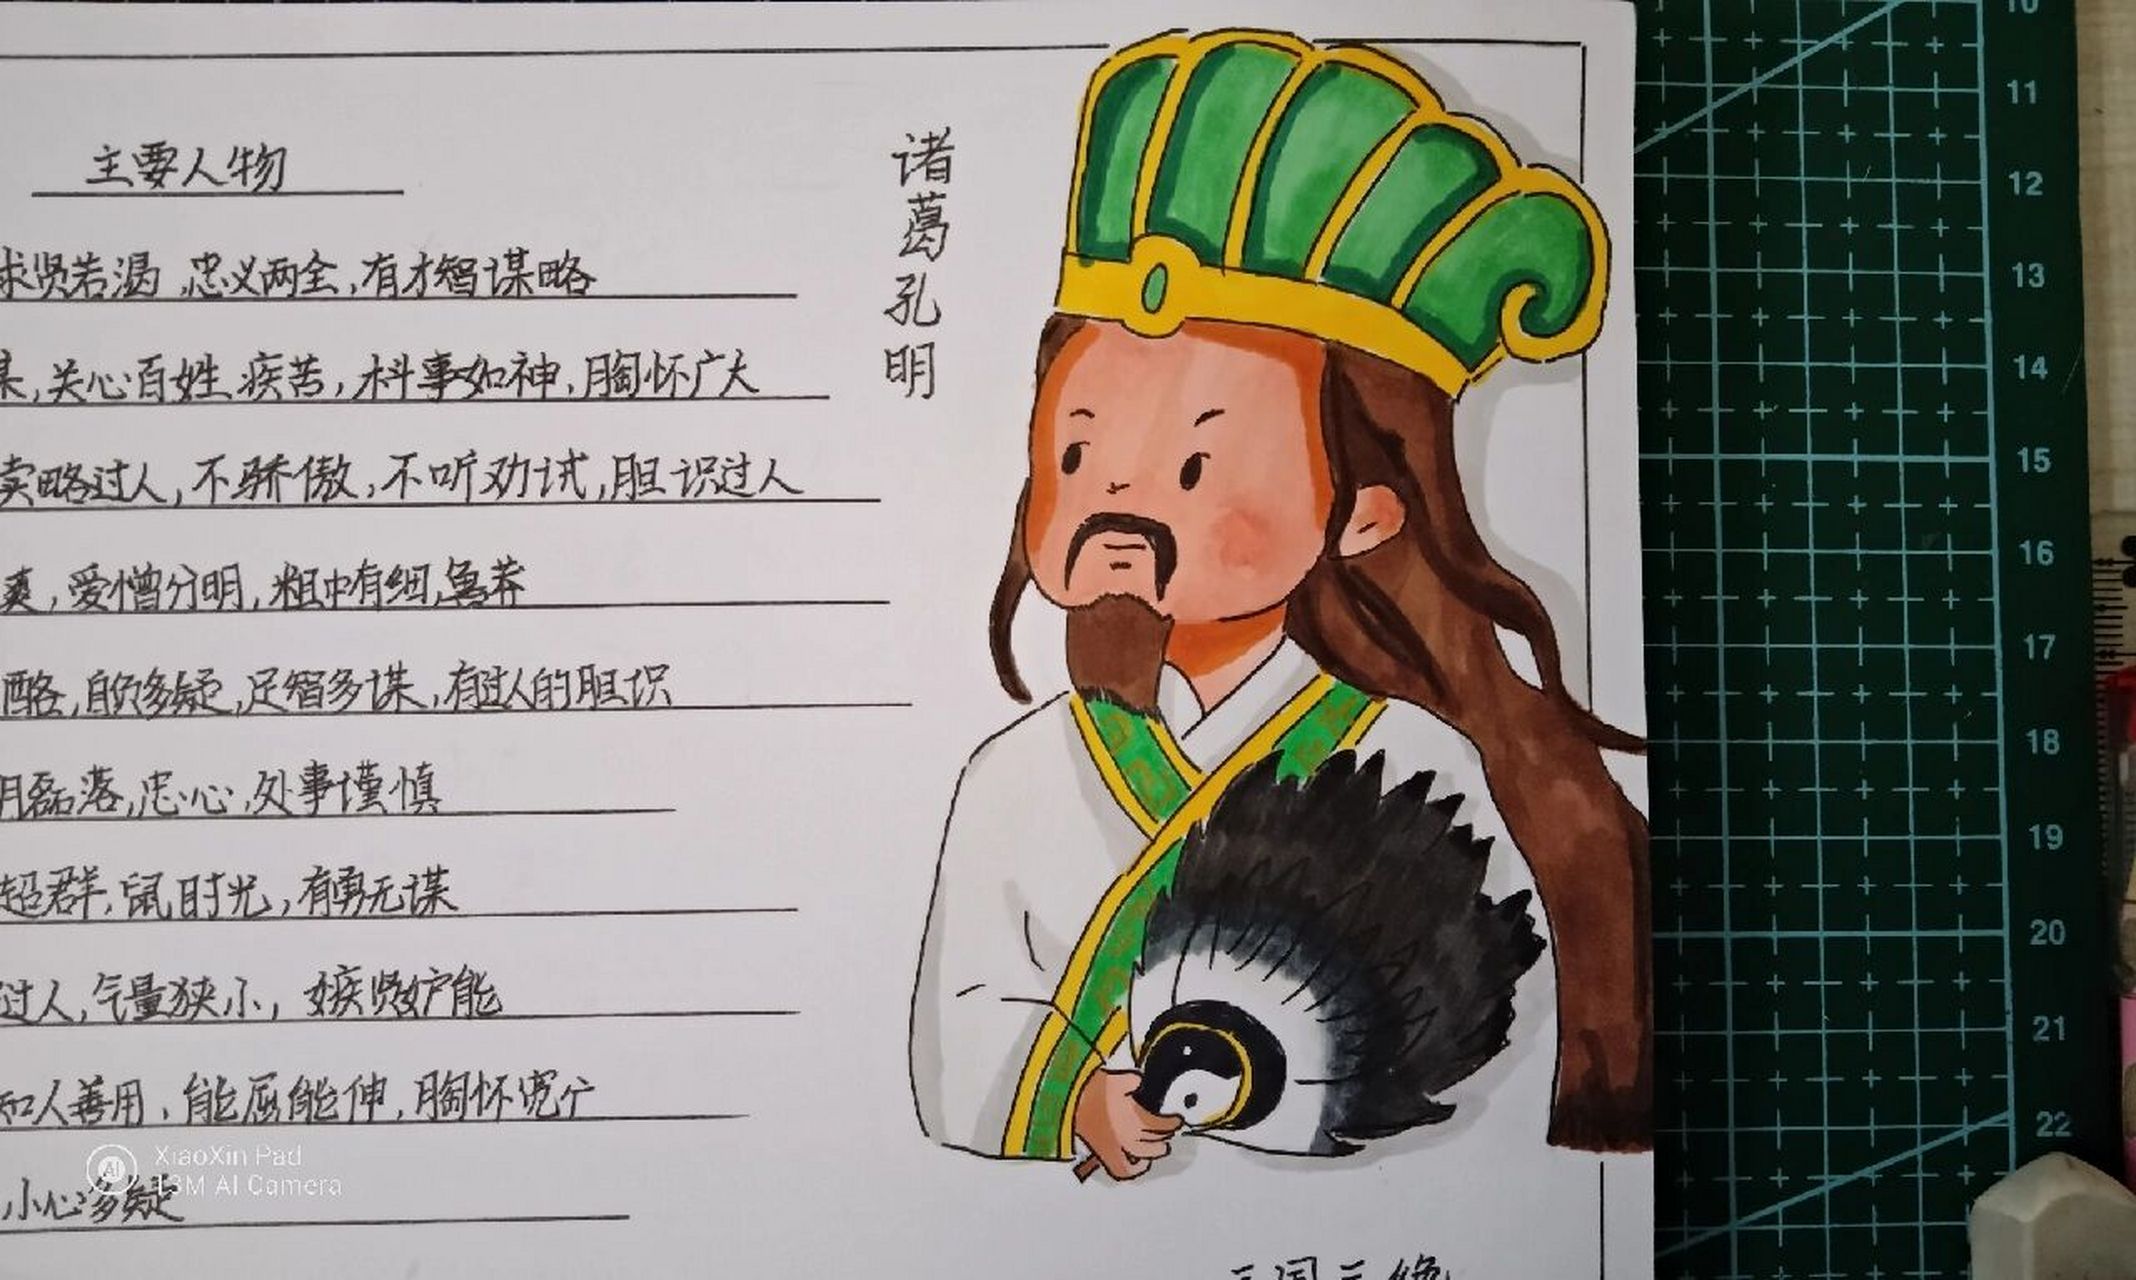 主要人物
求贤若渴,忠义两全,有才智谋略
,关心百姓疾苦,料事如神,胸怀广大
略过人,不骄傲,不听劝,胆识过人
爽,爱憎分明,粗中有细,鲁莽
略,自负多疑,足智多谋,有过人的胆识
明磊落,忠心,处事谨慎
超群,鼠目时光,有勇无谋
过人,气量狭小,嫉贤妒能
知人善用,能屈能伸,胸怀宽广
,小心多疑
诸葛孔明
XiaoXin Pad
13M AI Camera
AI
10
11
12
13
14
15
16
17
18
19
20
21
22